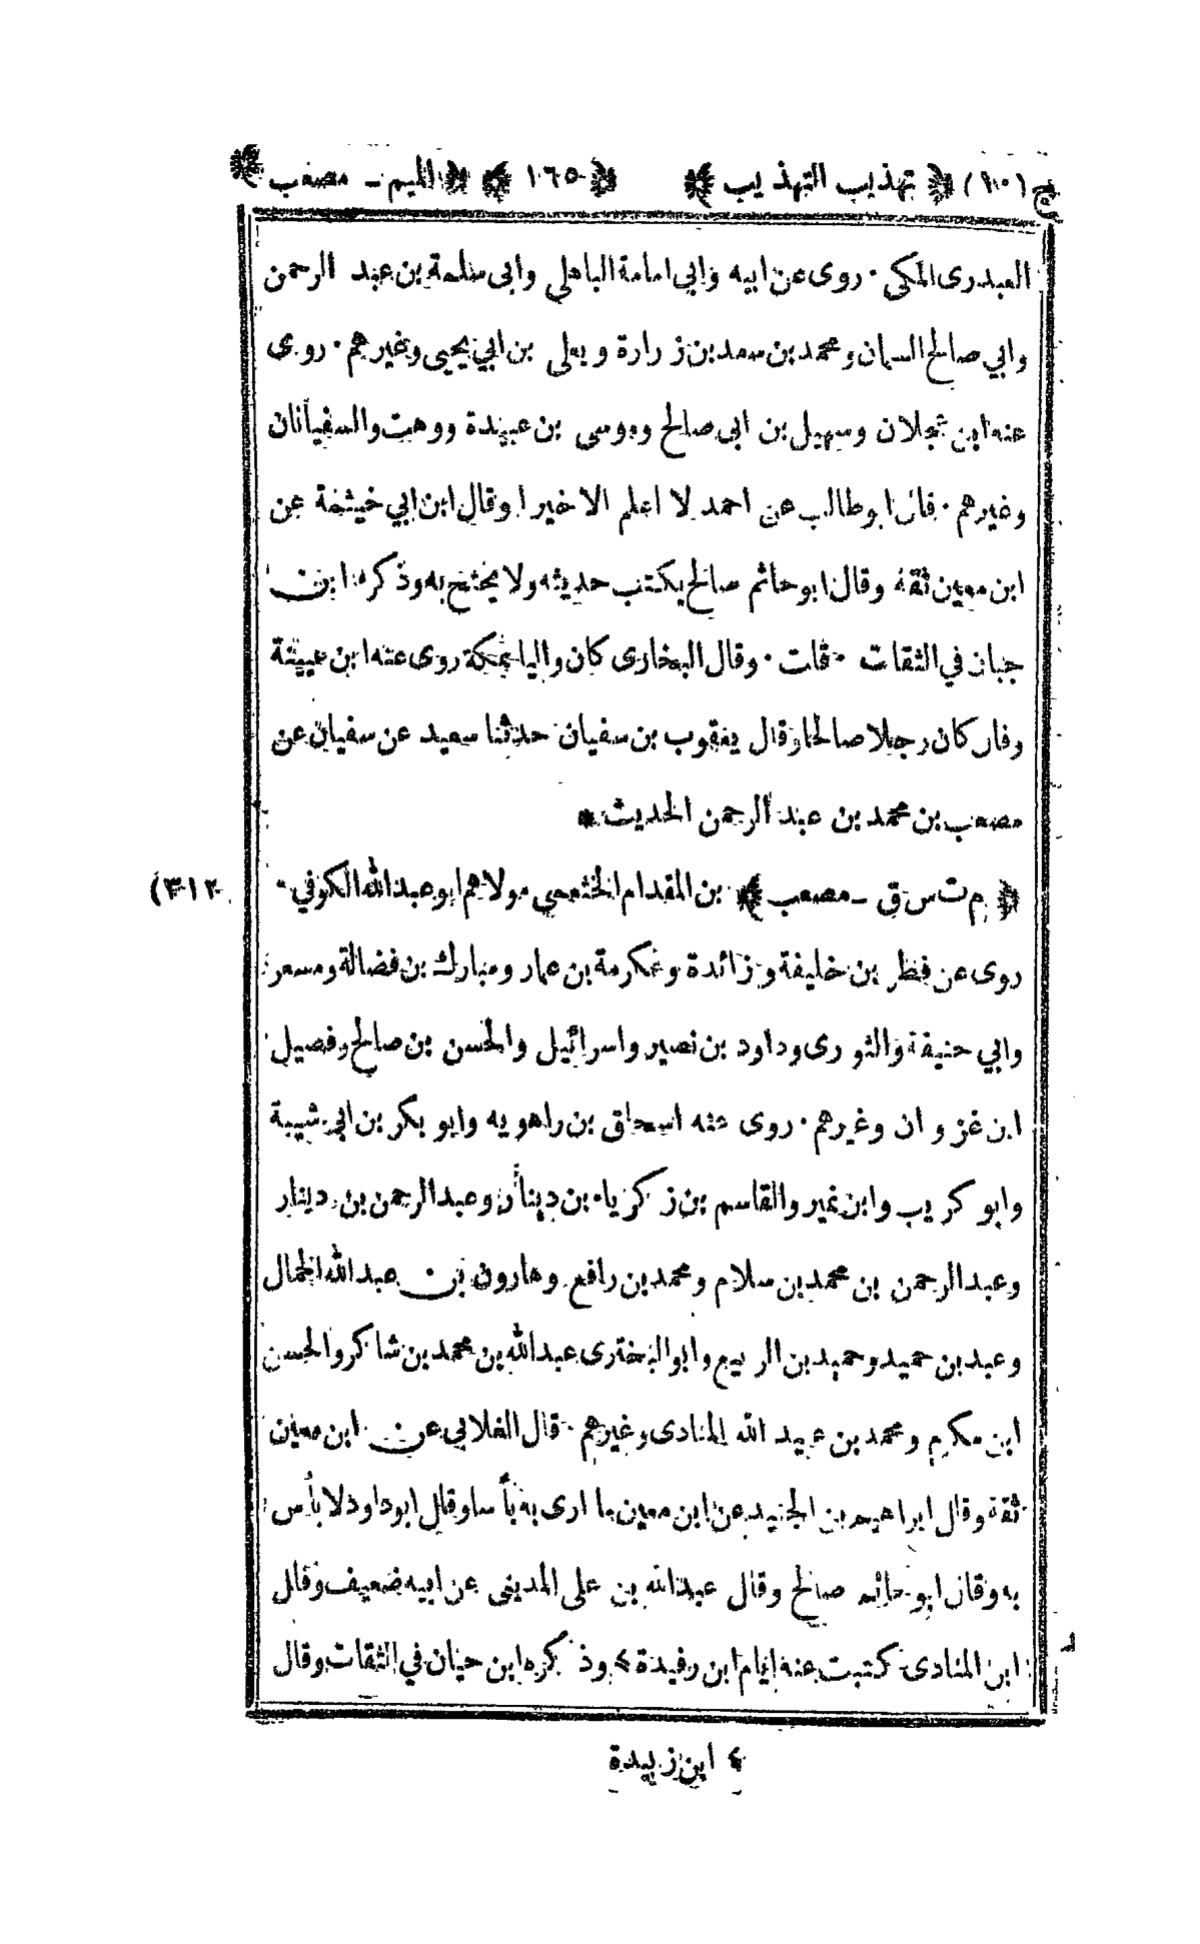 ج (١٠) ﴿ تهذيب التهذيب ﴾ ﴿ ١٦٥ ﴾ ﴿ الميم - مصعب ﴾
العبدرى المكى · روى عن ابيه وابي امامة الباهلي وابى سلمة بن عبد الرحمن
وابي صالح السمان ومحمد بن سعد بن زرارة ويعلى بن ابي يحيى وغيرهم · روى
عنه ابن عجلان وسهيل بن ابى صالح وموسى بن عبيدة ووهب والسفيانان
وغيرهم · قال ابو طالب عن احمد لا اعلم الا خيرا وقال ابن ابي خيثمة عن
ابن معين ثقة وقال ابو حاتم صالح يكتب حديثه ولا يحتج به وذكره ابن
حبان في الثقات · قلت · وقال البخارى كان واليا بمكة روى عنه ابن عيينة
وقال كان رجلا صالحا وقال يعقوب بن سفيان حدثنا سعيد عن سفيان عن
مصعب بن محمد بن عبد الرحمن الحديث *
﴿ م ت س ق - مصعب ﴾ بن المقدام الخثعمي مولاهم ابو عبد الله الكوفي · (٣١٢)
روى عن فطر بن خليفة وزائدة وعكرمة بن عمار ومبارك بن فضالة ومسعر
وابي حنيفة والثورى وداود بن نصير واسرائيل والحسن بن صالح وفضيل
ابن غزوان وغيرهم · روى عنه اسحاق بن راهويه وابو بكر بن ابي شيبة
وابو كريب وابن نمير والقاسم بن زكرياء بن دينار وعبد الرحمن بن دينار
وعبد الرحمن بن محمد بن سلام ومحمد بن رافع وهارون بن عبد الله الحمال
وعبد بن حميد وحميد بن الربيع وابو البخترى عبد الله بن محمد بن شاكر والحسن
ابن مكرم ومحمد بن عبيد الله المنادى وغيرهم · قال الغلابي عن ابن معين
ثقة وقال ابراهيم بن الجنيد عن ابن معين ما ارى به بأسا وقال ابو داود لا بأس
به وقال ابو حاتم صالح وقال عبد الله بن على المدينى عن ابيه ضعيف وقال
ابن المنادى كتبت عنه ايام ابن رفيدة ٤ وذكره ابن حبان في الثقات وقال
٤ ابن زبيدة